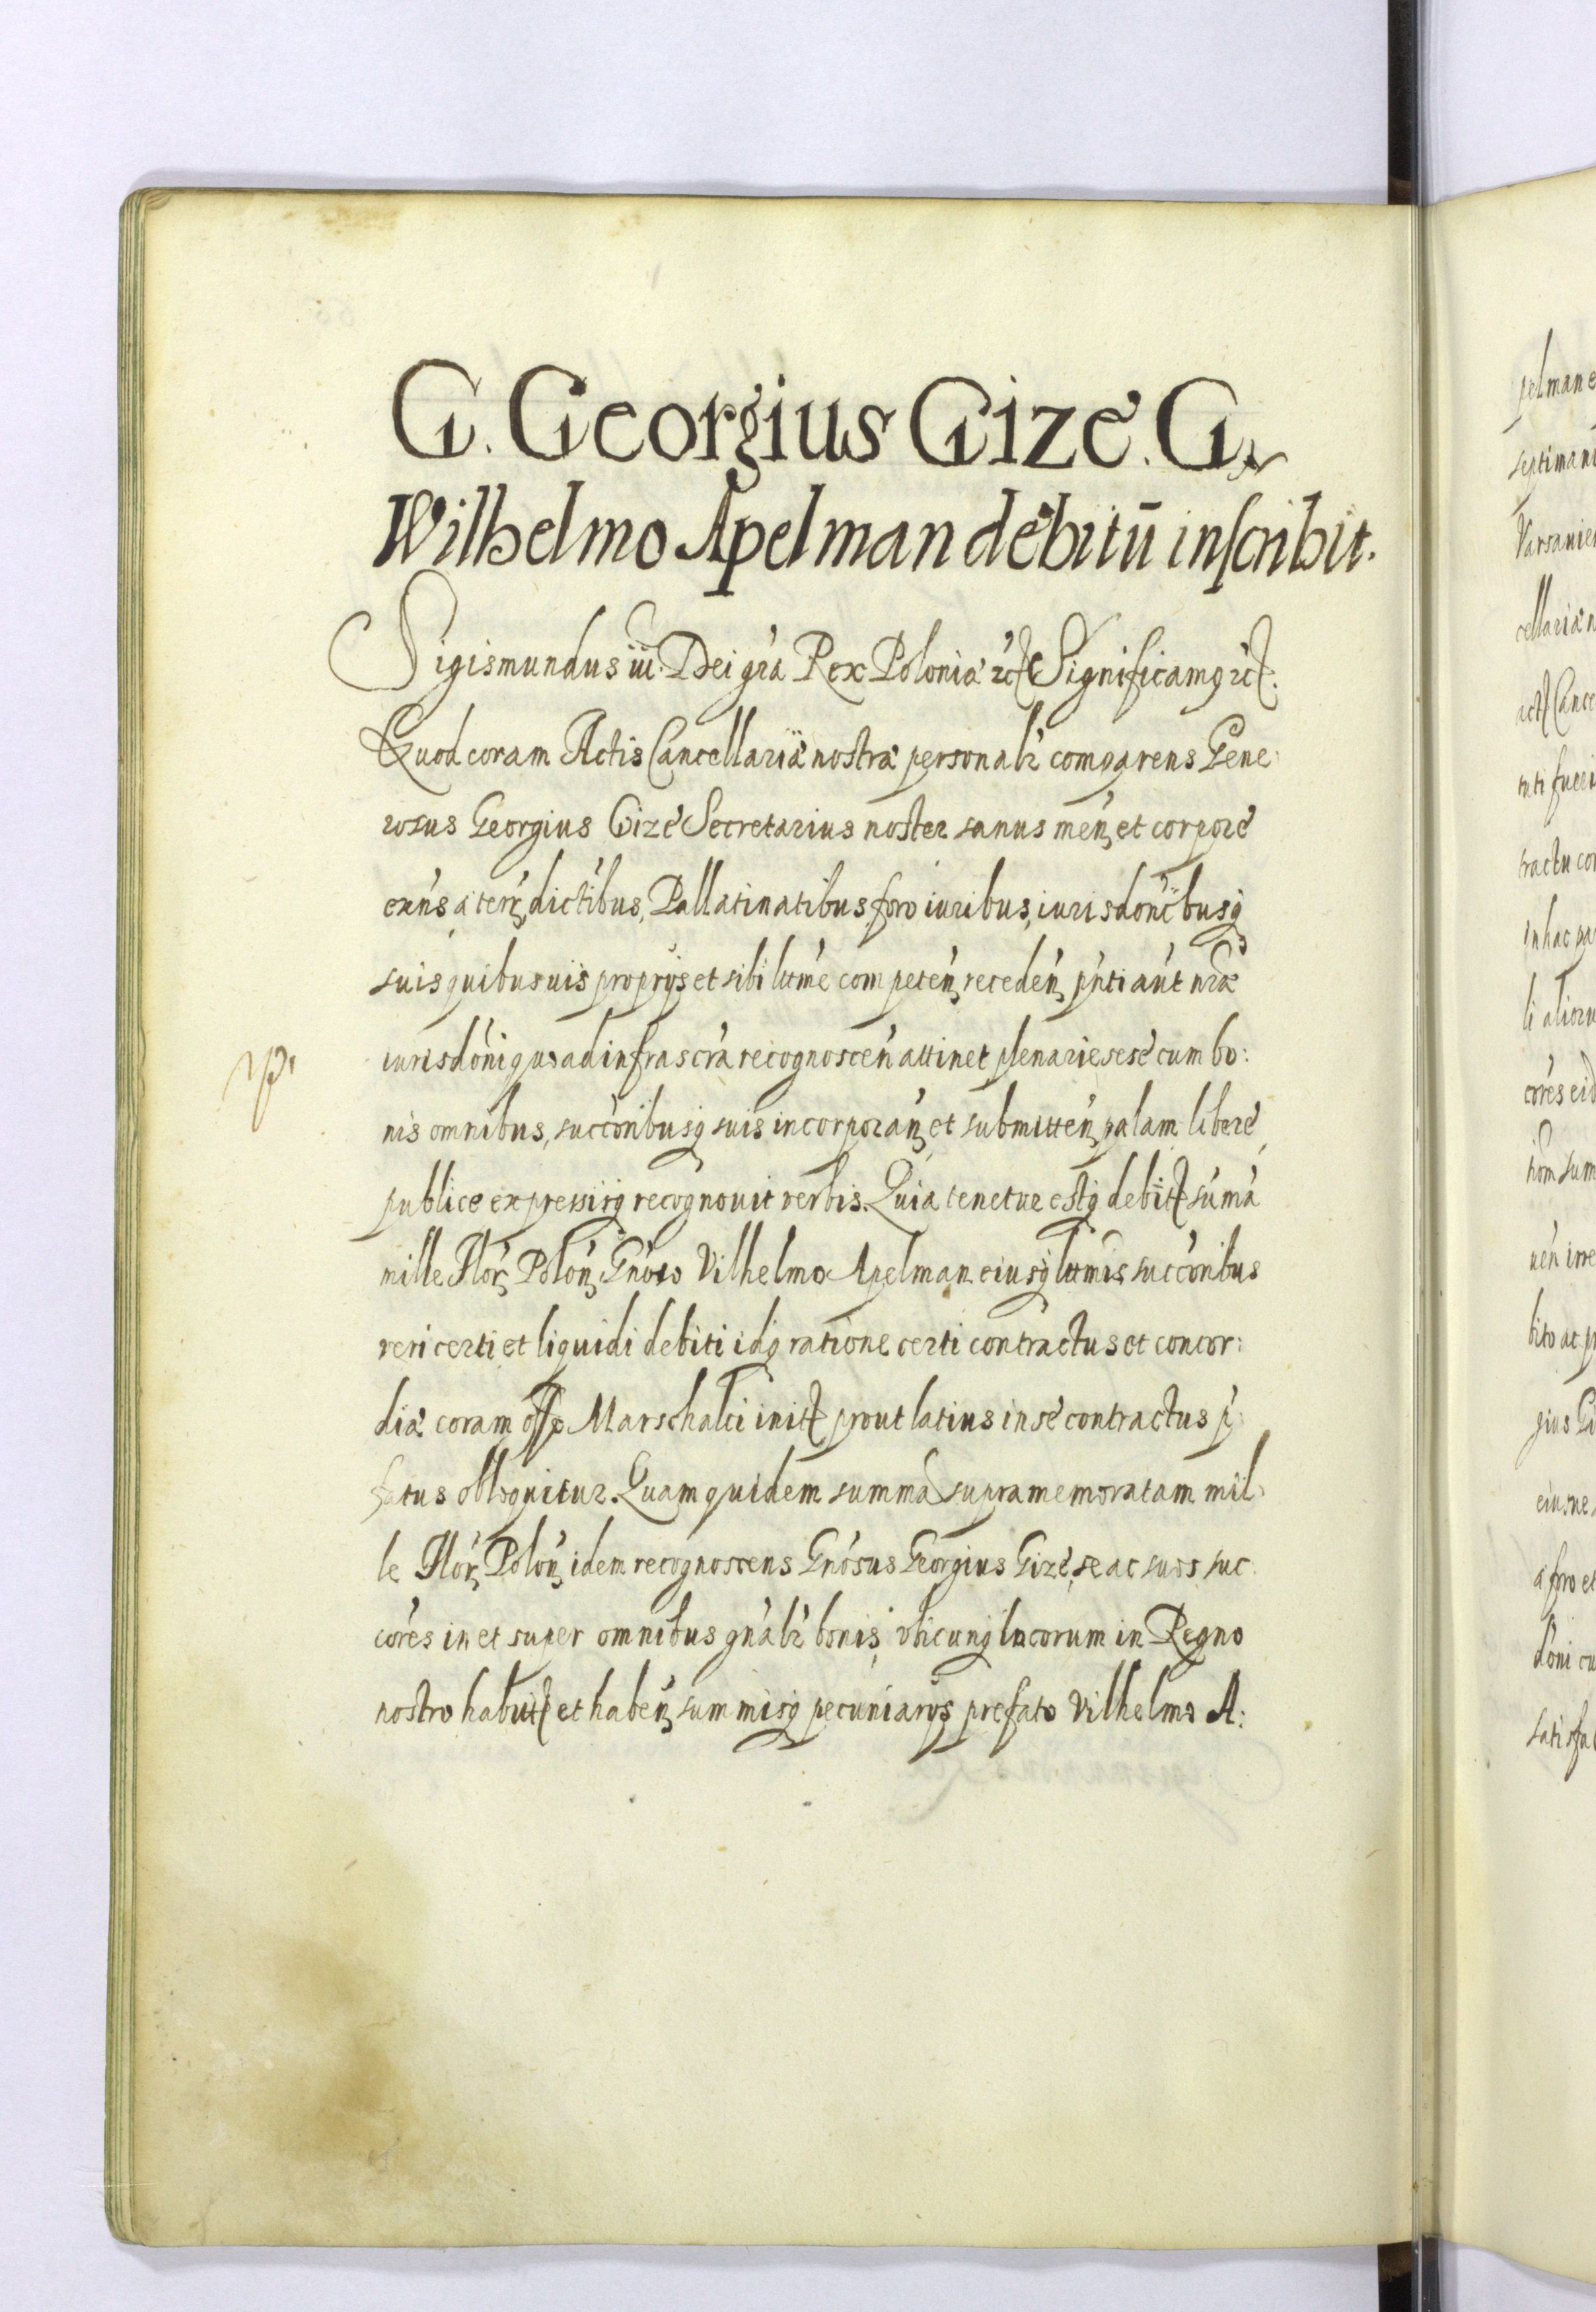 G. Georgius Gize. G.
Wilhelmo Apelman debitū inscribit.
Sigismundus iii. Dei gra Rex Poloniæ etc Significamq etc.
Quod coram Actis Cancellariæ nostræ personalr comparens Gene:
rosus Georgius Gize Secretarius noster sanus men et corpore
exns a terr, dictibus, Pallatinatibus, foro iuribus, iurisdonibusq
suis quibusuis proprijs et sibi lttme competen recedén pnti aut nræ
iurisdoni quoad infrascra recognoscén attinet plenarie sese cum bo:
nis omnibus, succoribusq suis incorporán et submittén palam libere
publice expressisq recognouit verbis. Quia tenetur estq debit suma
mille Flor Polon Gnoso Vilhelmo Apelman eiusq lttmis succoribus
veri certi et liquidi debiti idq ratione certi contractus et concor:
diæ coram offo Marschalci init prout latius in se contractus p
fatus obloquitur. Quam quidem summa supra memoratam mil:
le Flor Polon idem recognoscens Gnosus Georgius Gize, se ac suos suc:
cores in et super omnibus gnalr bonis vbicunq locorum in Regno
nostro habit et habén summisq pecuniarijs prefato Vilhelmo A:
pelman e
septimani
Varsauien
cellariæ n
tractu con
in hac pa
cores eid
gius Gi
a foro et
doni cu
satisfac